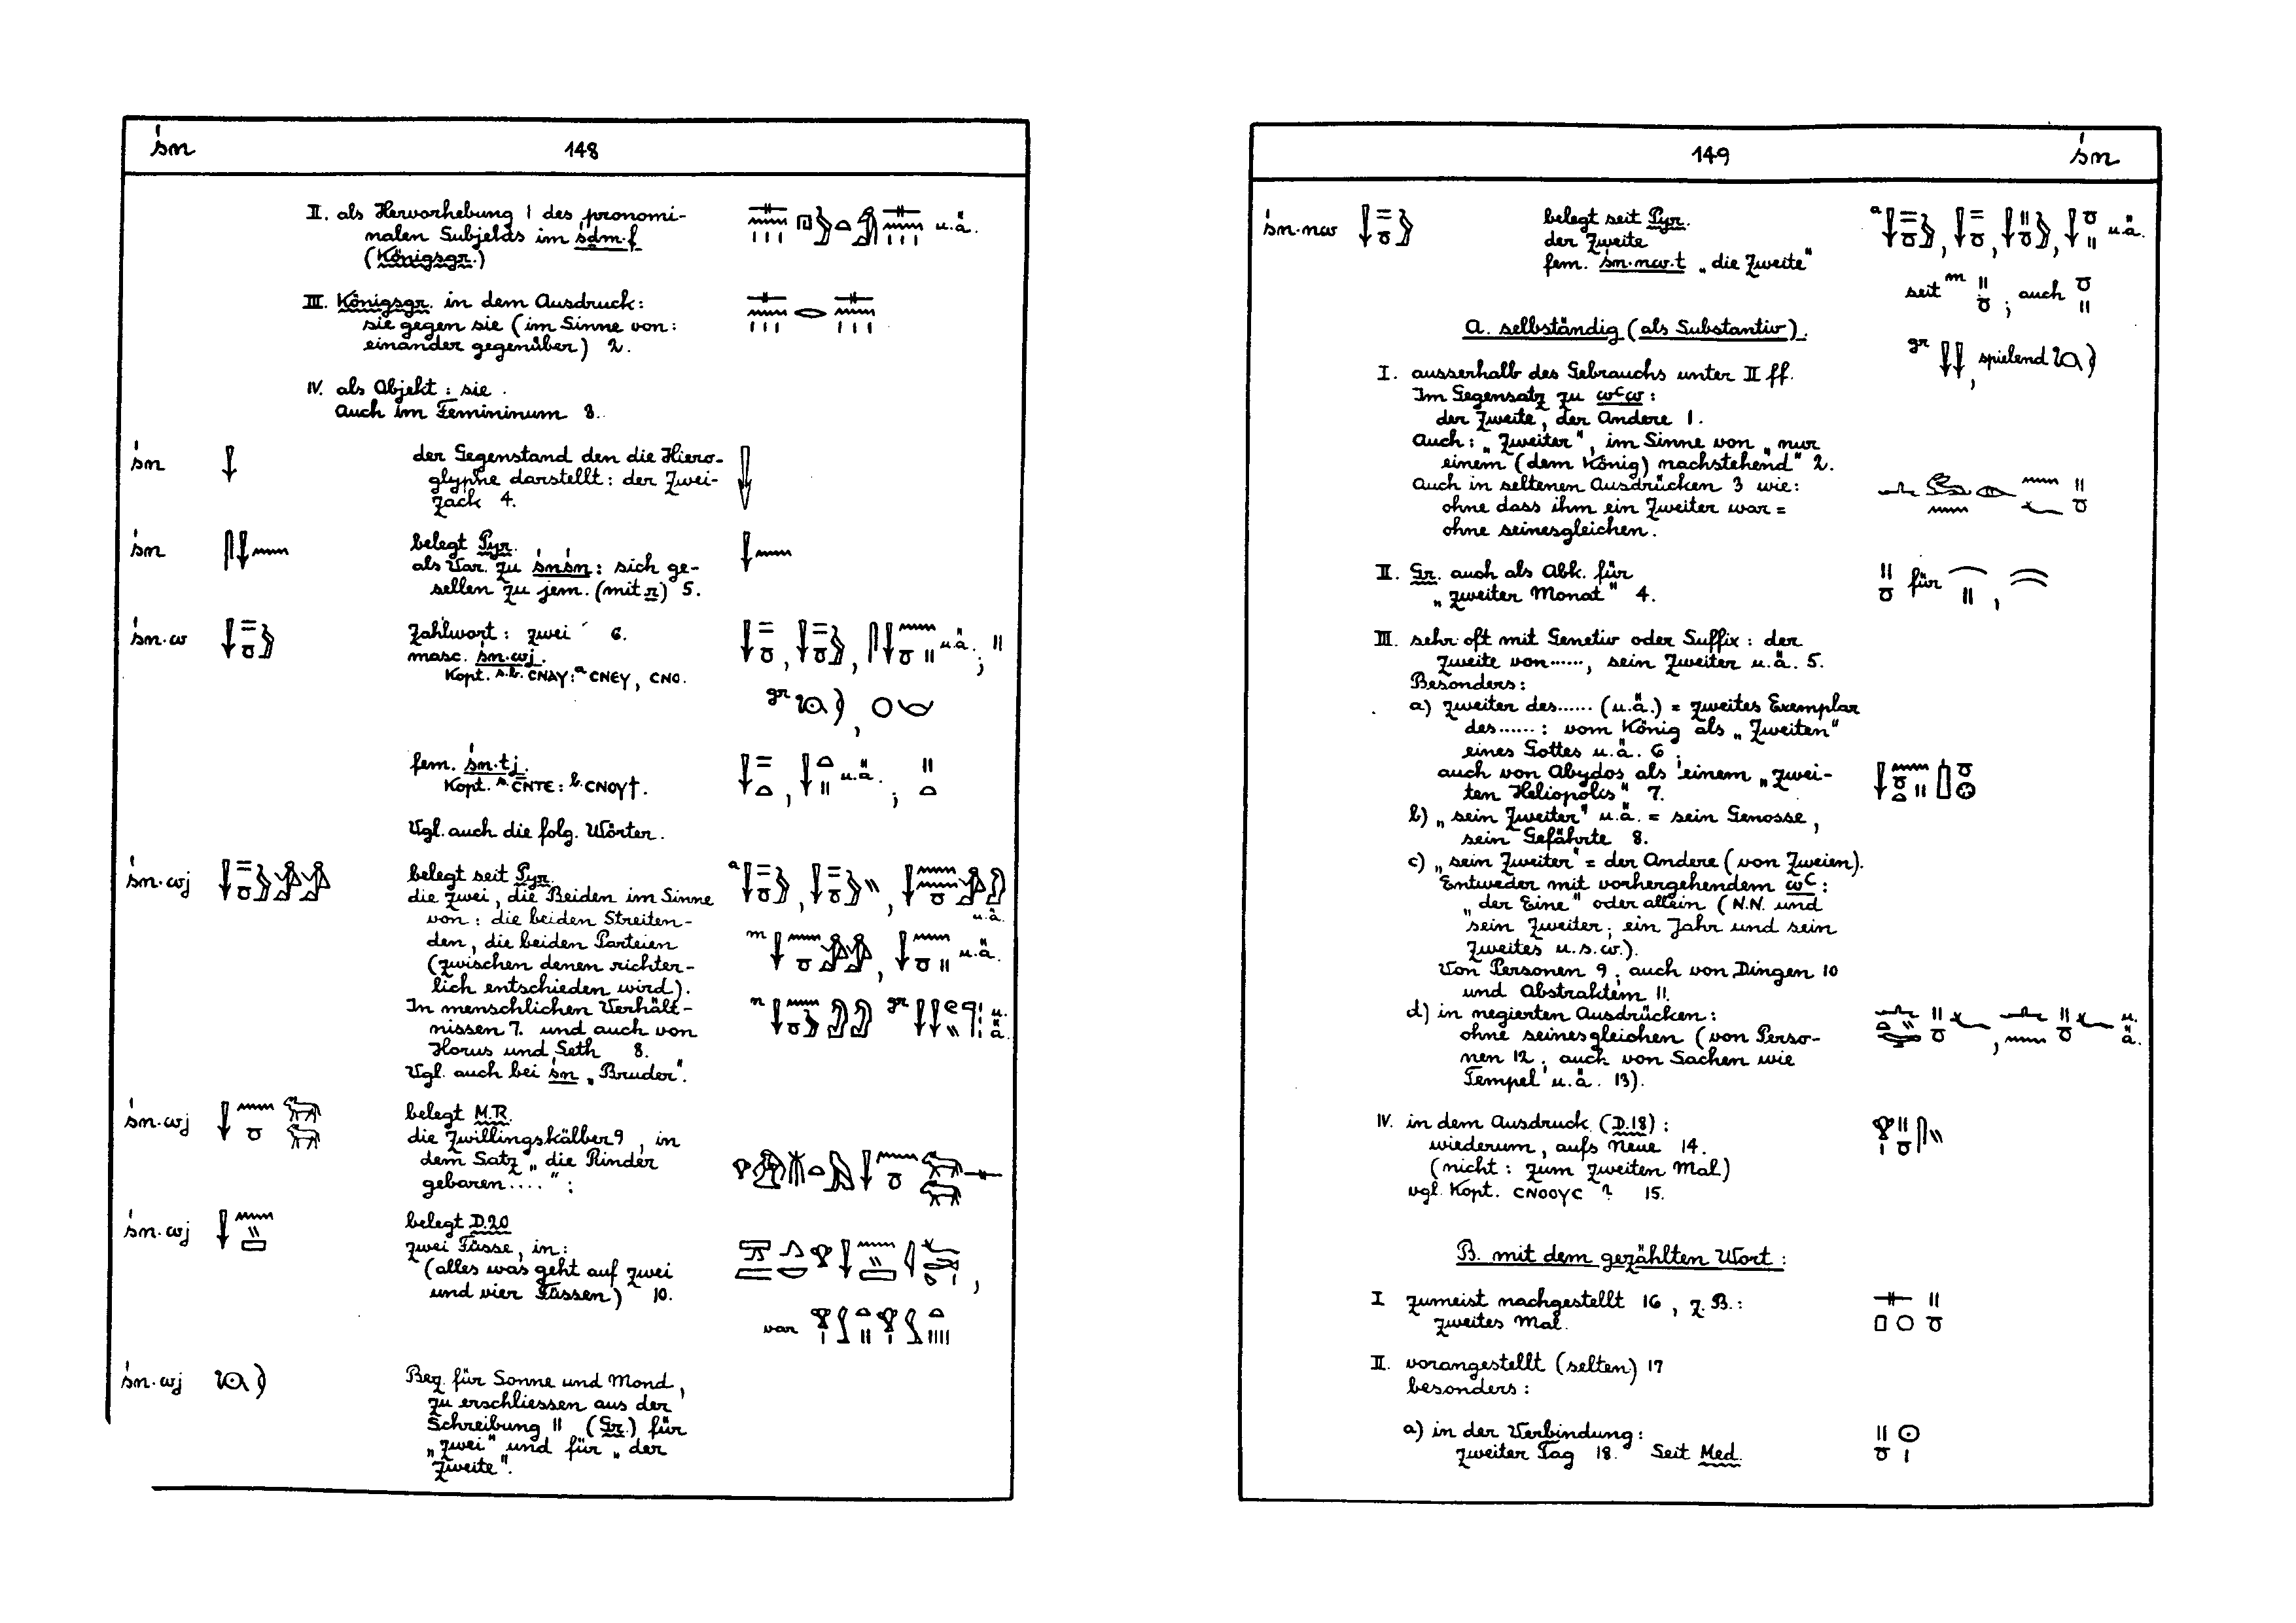 śn 148
II. als Hervorhebung 1 des pronomi-
nalen Subjekts im śdm.f u.ä.
(Königsgr.)
III. Königsgr. in dem Ausdruck:
sie gegen sie (im Sinne von:
einander gegenüber) 2.
IV. als Objekt: sie.
Auch im Femininum 3.
śn der Gegenstand den die Hiero-
glyphe darstellt: der Zwei-
zack 4.
śn belegt Pyr.
als Var. zu śnśn: sich ge-
sellen zu jem. (mit r) 5.
śn.w Zahlwort: zwei 6. u.ä. ;
masc. śn.wj.
Kopt. s.b. CNAY: a CNEY, CNO.
gr
fem. śn.tj. u.ä. ;
Kopt. s. CNTE: b. CNOY†.
Vgl. auch die folg. Wörter.
śn.wj belegt seit Pyr. a
die zwei, die Beiden im Sinne
von: die beiden Streiten- u.ä.
den, die beiden Parteien m u.ä.
(zwischen denen richter-
lich entschieden wird).
In menschlichen Verhält- n gr u.ä.
nissen 7. und auch von
Horus und Seth 8.
Vgl. auch bei śn „Bruder".
śn.wj belegt M.R.
die Zwillingskälber 9, in
dem Satz „die Rinder
gebaren....":
śn.wj belegt D.20
zwei Füsse, in:
(alles was geht auf zwei
und vier Füssen) 10.
var
śn.wj Bez. für Sonne und Mond,
zu erschliessen aus der
Schreibung II (Gr.) für
„zwei" und für „der
Zweite".
149 śn
śn.nw belegt seit Pyr. a u.ä.
der Zweite
fem. śn.nw.t „die Zweite"
seit m ; auch
A. selbständig (als Substantiv).
gr , spielend
I. ausserhalb des Gebrauchs unter II ff.
Im Gegensatz zu wꜥw:
der Zweite, der Andere 1.
Auch: „Zweiter", im Sinne von „nur
einem (dem König) nachstehend" 2.
Auch in seltenen Ausdrücken 3 wie:
ohne dass ihm ein Zweiter war =
ohne seinesgleichen.
II. Gr. auch als Abk. für
„zweiter Monat" 4. für
III. sehr oft mit Genetiv oder Suffix: der
Zweite von......, sein Zweiter u.ä. 5.
Besonders:
a) Zweiter des...... (u.ä.) = zweites Exemplar
des......: vom König als „Zweiten"
eines Gottes u.ä. 6;
auch von Abydos als einem „zwei-
ten Heliopolis" 7.
b) „sein Zweiter" u.ä. = sein Genosse,
sein Gefährte 8.
c) „sein Zweiter" = der Andere (von Zweien).
Entweder mit vorhergehendem wꜥ:
„der Eine" oder allein (N.N. und
sein Zweiter; ein Jahr und sein
Zweites u.s.w.).
Von Personen 9; auch von Dingen 10
und Abstraktem 11.
d) in negierten Ausdrücken: u.ä.
ohne seinesgleichen (von Perso-
nen 12, auch von Sachen wie
Tempel u.ä. 13).
IV. in dem Ausdruck (D.18):
wiederum, aufs Neue 14.
(nicht: zum zweiten Mal)
vgl. Kopt. CNOOYC ? 15.
B. mit dem gezählten Wort:
I zumeist nachgestellt 16, z.B.:
zweites Mal.
II. vorangestellt (selten) 17
besonders:
a) in der Verbindung:
zweiter Tag 18. Seit Med.